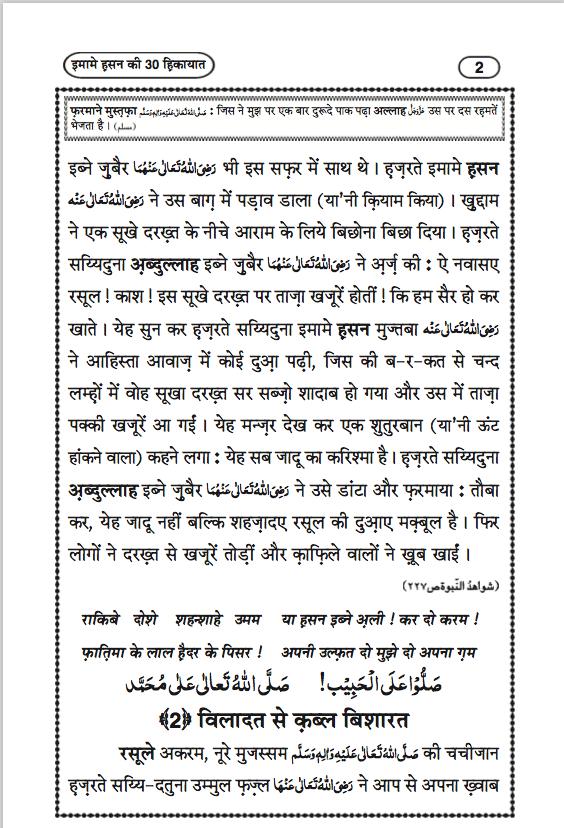 इमामे ह़सन की 30 ह़िकायात
2
फ़रमाने मुस्त़फ़ा صَلَّى اللهُ تَعَالٰى عَلَيْهِ وَاٰلِهٖ وَسَلَّم : जिस ने मुझ पर एक बार दुरूदे पाक पढ़ा अल्लाह عَزَّوَجَلَّ उस पर दस रह़मतें
भेजता है । (مسلم)
इब्ने जुबैर رَضِىَ اللهُ تَعَالٰى عَنْهُمَا भी इस सफ़र में साथ थे । ह़ज़रते इमामे ह़सन
رَضِىَ اللهُ تَعَالٰى عَنْه ने उस बाग़ में पड़ाव डाला (या'नी क़ियाम किया) । ख़ुद्दाम
ने एक सूखे दरख़्त के नीचे आराम के लिये बिछोना बिछा दिया । ह़ज़रते
सय्यिदुना अ़ब्दुल्लाह इब्ने ज़ुबैर رَضِىَ اللهُ تَعَالٰى عَنْهُمَا ने अ़र्ज़ की : ऐ नवासए
रसूल ! काश ! इस सूखे दरख़्त पर ताज़ा खजूरें होतीं ! कि हम सैर हो कर
खाते । येह सुन कर ह़ज़रते सय्यिदुना इमामे ह़सन मुज्तबा رَضِىَ اللهُ تَعَالٰى عَنْه
ने आहिस्ता आवाज़ में कोई दुआ़ पढ़ी, जिस की ब-र-कत से चन्द
लम्ह़ों में वोह सूखा दरख़्त सर सब्ज़ो शादाब हो गया और उस में ताज़ा
पक्की खजूरें आ गईं । येह मन्ज़र देख कर एक शुतुरबान (या'नी ऊंट
हांकने वाला) कहने लगा : येह सब जादू का करिश्मा है । ह़ज़रते सय्यिदुना
अ़ब्दुल्लाह इब्ने ज़ुबैर رَضِىَ اللهُ تَعَالٰى عَنْهُمَا ने उसे डांटा और फ़रमाया : तौबा
कर, येह जादू नहीं बल्कि शहज़ादए रसूल की दुआ़ए मक़्बूल है । फिर
लोगों ने दरख़्त से खजूरें तोड़ीं और क़ाफ़िले वालों ने ख़ूब खाईं ।
(شواھدُ النّبوۃ ص۲۲۷)
राकिबे दोशे शहन्शाहे उमम या ह़सन इब्ने अ़ली ! कर दो करम !
फ़ात़िमा के लाल ह़ैदर के पिसर ! अपनी उल्फ़त दो मुझे दो अपना ग़म
صَلُّوْا عَلَى الْحَبِيْب! صَلَّى اللهُ تَعَالٰى عَلٰى مُحَمَّد
﴾2﴿ विलादत से क़ब्ल बिशारत
रसूले अकरम, नूरे मुजस्सम صَلَّى اللهُ تَعَالٰى عَلَيْهِ وَاٰلِهٖ وَسَلَّم की चचीजान
ह़ज़रते सय्यि-दतुना उम्मुल फ़ज़्ल رَضِىَ اللهُ تَعَالٰى عَنْهَا ने आप से अपना ख़्वाब